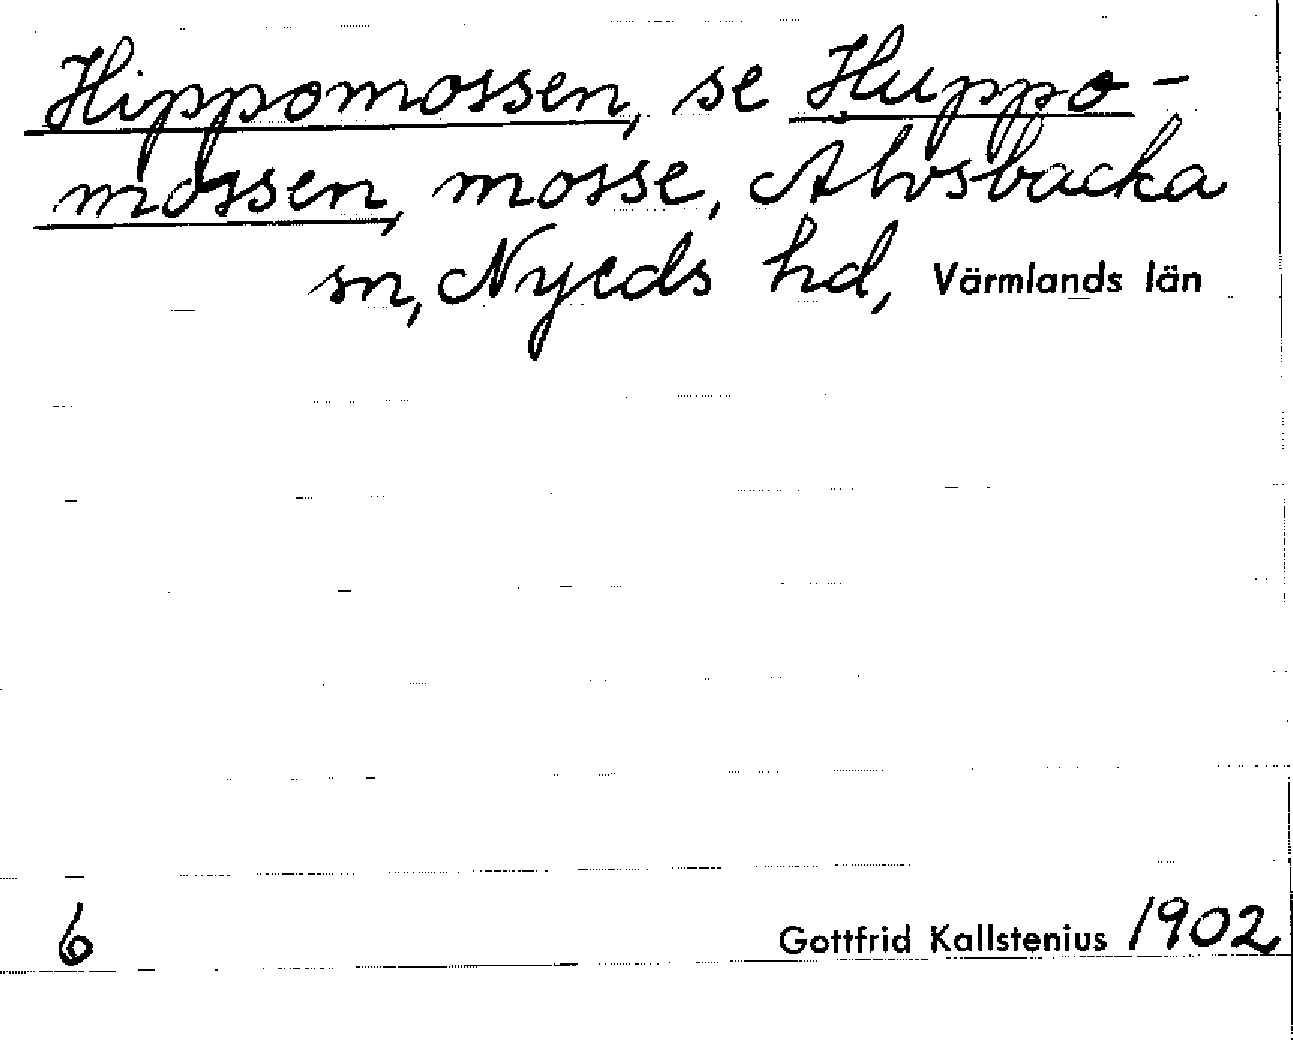 Hippomossen, se Huppo-
mossen, mosse, Alvsbacka
sn, Nyeds hd, Värmlands län
6 Gottfrid Kallstenius 1902